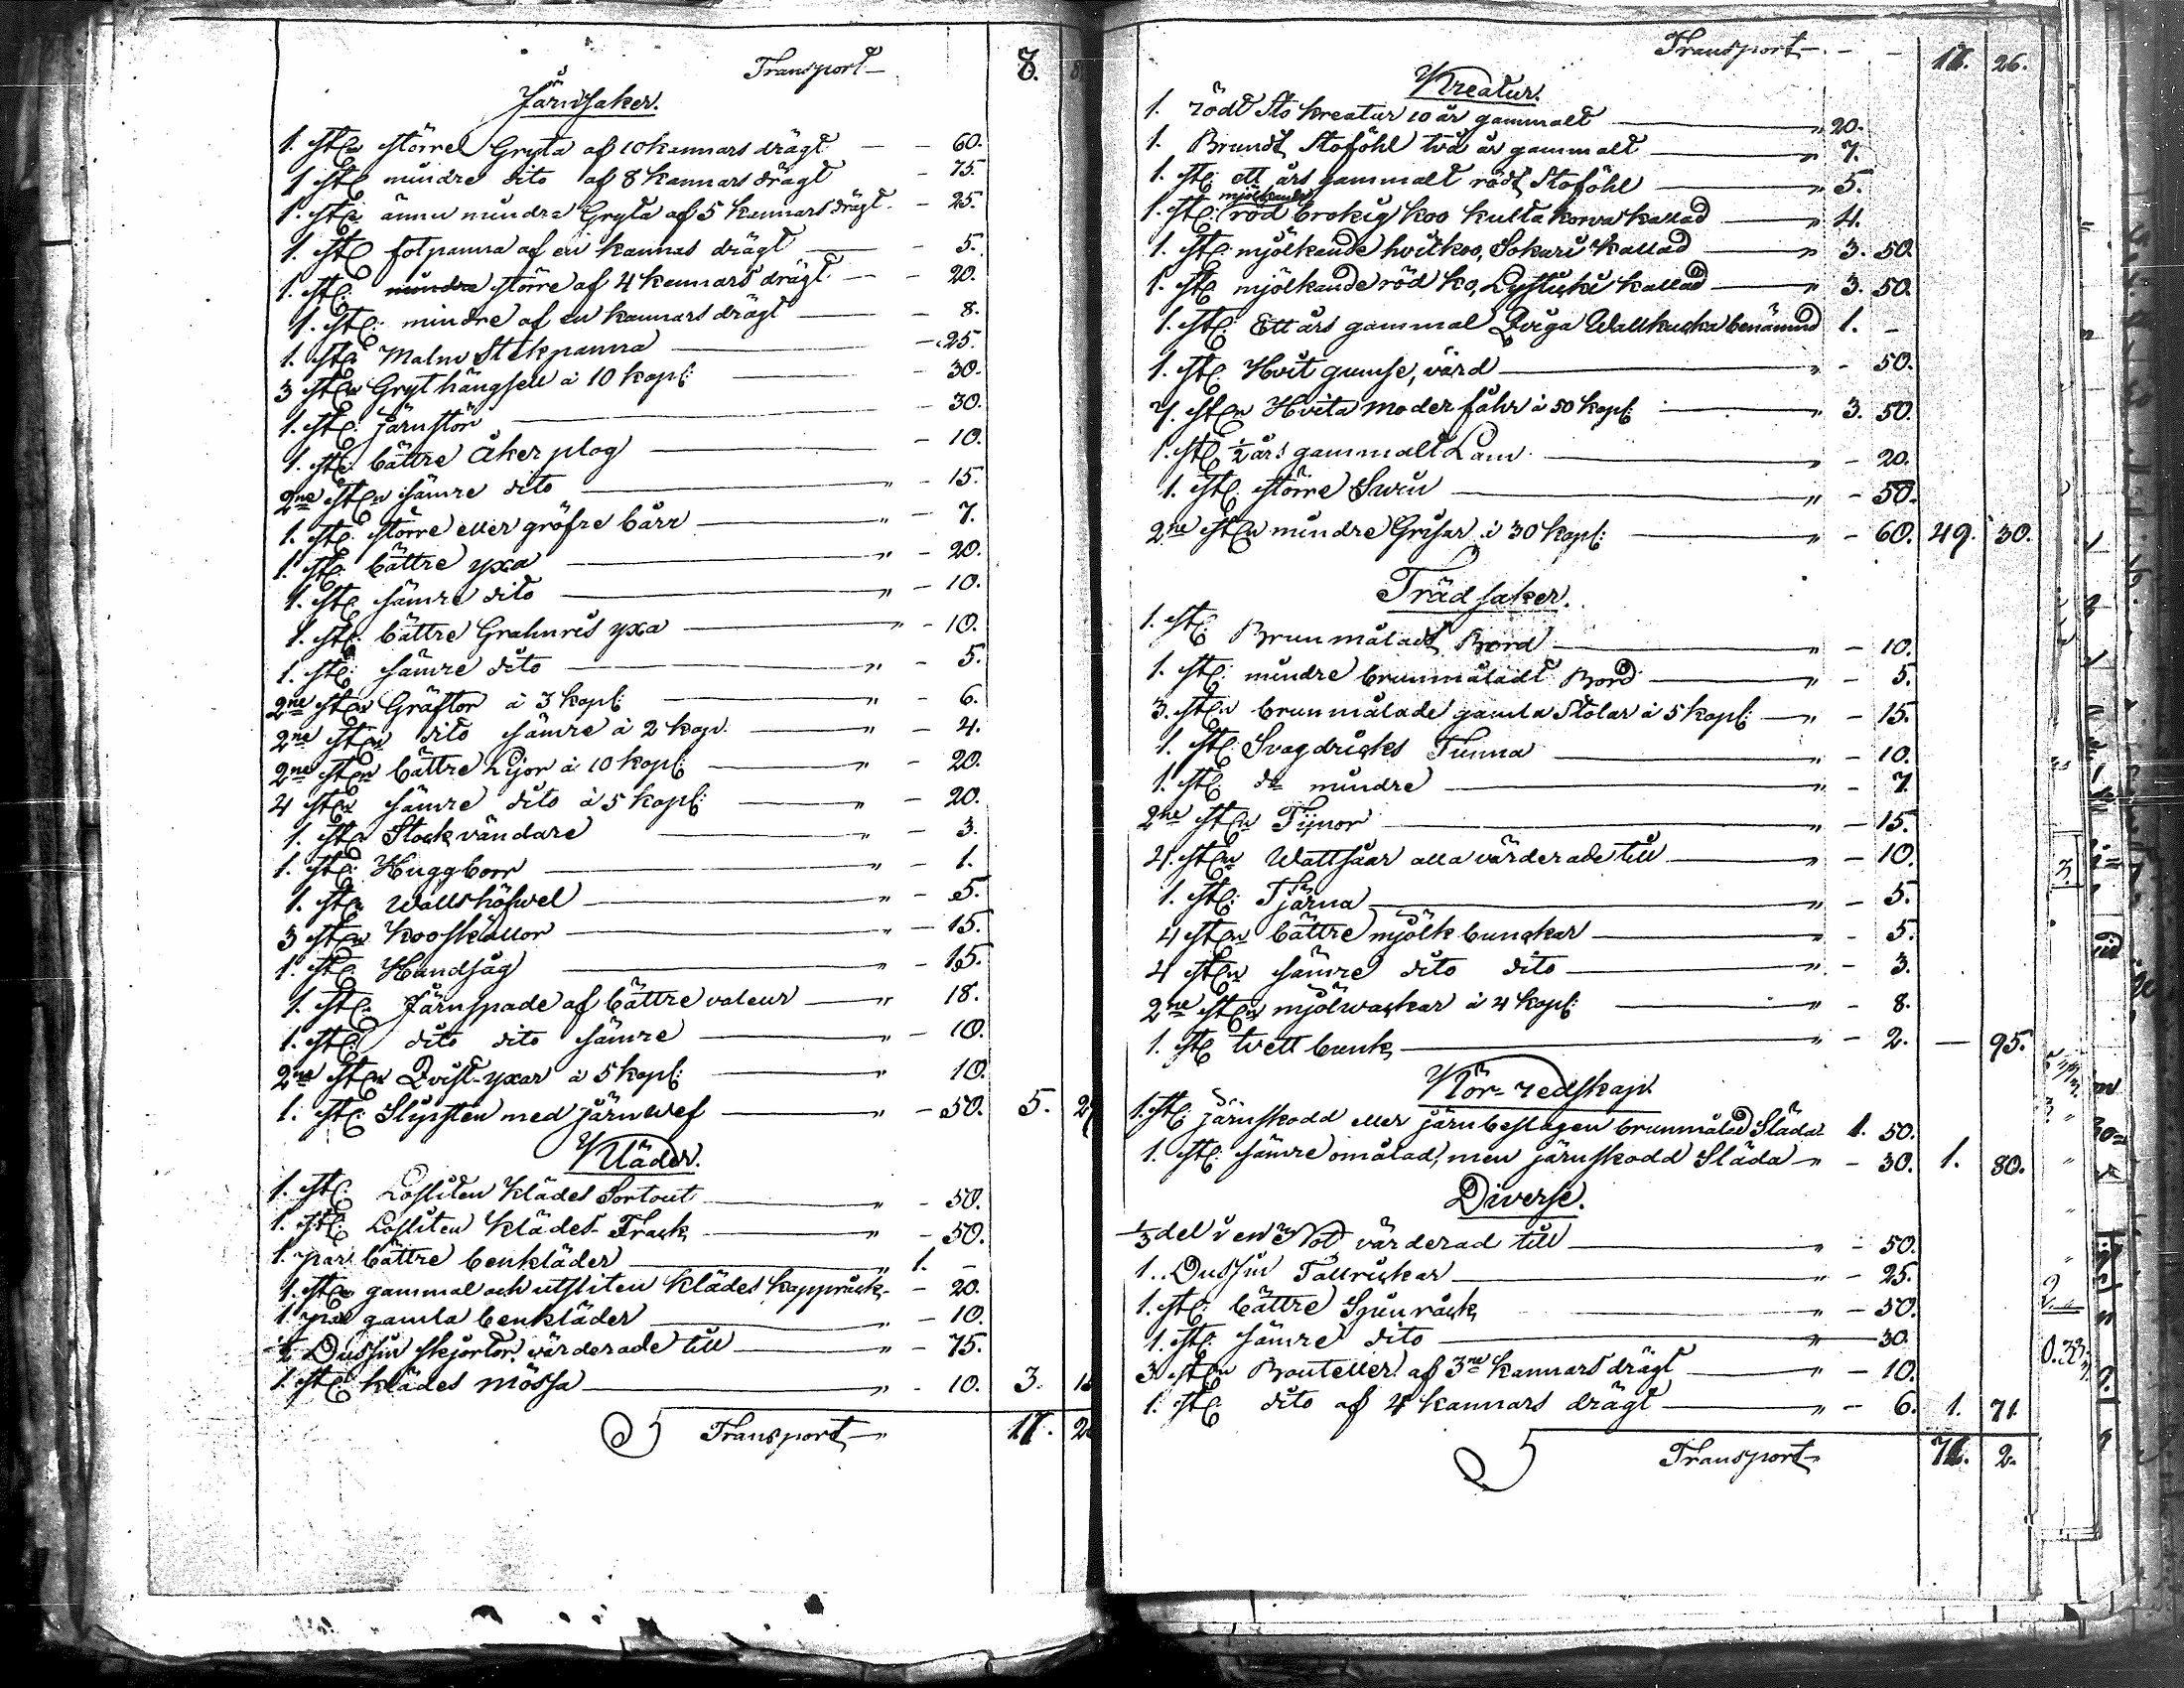 Transport 8.
Järnsaker.
1. st. större Gryta af 10 kannars drägt — — 60.
1 st. mindre dito af 8 kannars drägt — 75.
1. st. ännu mindre Gryta af 5 kannars drägt — 25.
1. st. fotpanna af en kannas drägt — — 5.
1. st. mindre större af 4 kannars drägt — — 20.
1. st. mindre af en kannars drägt — — 8.
1. st. Malm Stekpanna — — 25.
3 st. Grythängslen à 10 kop: — — 30.
1. st. järnstör — 30.
1. st. bättre åkerplog — — 10.
2ne st. sämre dito — " — 15.
1. st. större eller gröfre bårr — " — 7.
1. st. bättre yxa — " — 20.
1. st. sämre dito — " — 10.
1. st. bättre Grahnris yxa — " — 10.
1. st. sämre dito — " — 5.
2ne st. Gräftor à 3 kop: — " — 6.
2ne st. dito sämre à 2 kop. — " — 4.
2ne st. bättre Lijor à 10 kop: — " — 20.
4 st. sämre dito à 5 kop: — " — 20.
1. st. Stockvändare — " — 3.
1. st. Huggborr — " — 1.
1. st. Wallshöfwel — " — 5.
3 st. kooskällor — " — 15.
1. st. Handsåg — " — 15.
1. st. Järnspade af bättre valeur — " 18.
1. st. dito dito sämre — " — 10.
2ne st. Qvist-yxor à 5 kop: — " 10.
1. st. Slipsten med järnwef — " — 50. 5.
Kläder.
1. st. Lossliten Klädes Sortout — " — 50.
1. st. Lossliten Klädes Frack — " — 50.
1. par bättre benkläder — " 1. —
1. st. gammal och utsliten klädes kappråck — — 20.
1 par gamla benkläder — " — 10.
½ Dussin skjortor, värderade till — " — 75.
1. st. klädes mössa — " — 10. 3.
Transport — 17.
Transport — — — 17. 26.
Kreatur.
1. rödt Sto kreatur 10 år gammalt — " 20.
1. Brundt Stoföhl två år gammalt — " 7.
1. st. ett års gammalt rödt Stoföhl — " 5.
mjölkande
1. st. röd brokig koo kulta korva kallad — " 4.
1. st. mjölkande hvit koo, Sokuri kallad — " 3. 50.
1. st. mjölkande röd ko, Lysticki kallad — " 3. 50.
1. st. Ett års gammal Qviga Wallkucka benämnd 1. —
1. st. Hvit gumse, värd — " — 50.
7. st. Hvita moderfåhr à 50 kop: — " 3. 50.
1. st. ½ års gammalt Lam — " — 20.
1. st. större Swin — " — 50.
2ne st. mindre Grisar à 30 kop: — " — 60. 49. 30.
Trädsaker.
1. st. Brunmåladt Bord — " — 10.
1. st. mindre brunmåladt Bord — " — 5.
3. st. brunmålade gamla Stolar à 5 kop: — " — 15.
1. st. Svagdricks Tunna — " — 10.
1. st. do mindre — " — 7.
2ne st. Tijnor — " — 15.
4. st. Wattsåar alla värderade till — " — 10.
1. st. Tjärna — " — 5.
4 st. bättre mjölkbunckar — " — 5.
4 st. sämre dito dito — " — 3.
2ne st. mjölwackar à 4 kop: — " — 8.
1. st. tvettbunk — " — 2. — 95.
Kör-redskap.
1. st. järnskodd eller järnbeslagen brunmålad Släda 1. 50.
1. st. sämre omålad, men järnskodd Släda — " — 30. 1. 80.
Diverse.
⅓ del i en Not värderad till — " — 50.
1. Dussin Tallrickar — " — 25.
1. st. bättre Spinråck — " — 50.
1. st. sämre dito — " — 30.
3 st. Bouteller af 3ne kannars drägt — " — 10.
1. st. dito af 4 kannars drägt — " — 6. 1. 71.
Transport — 2.